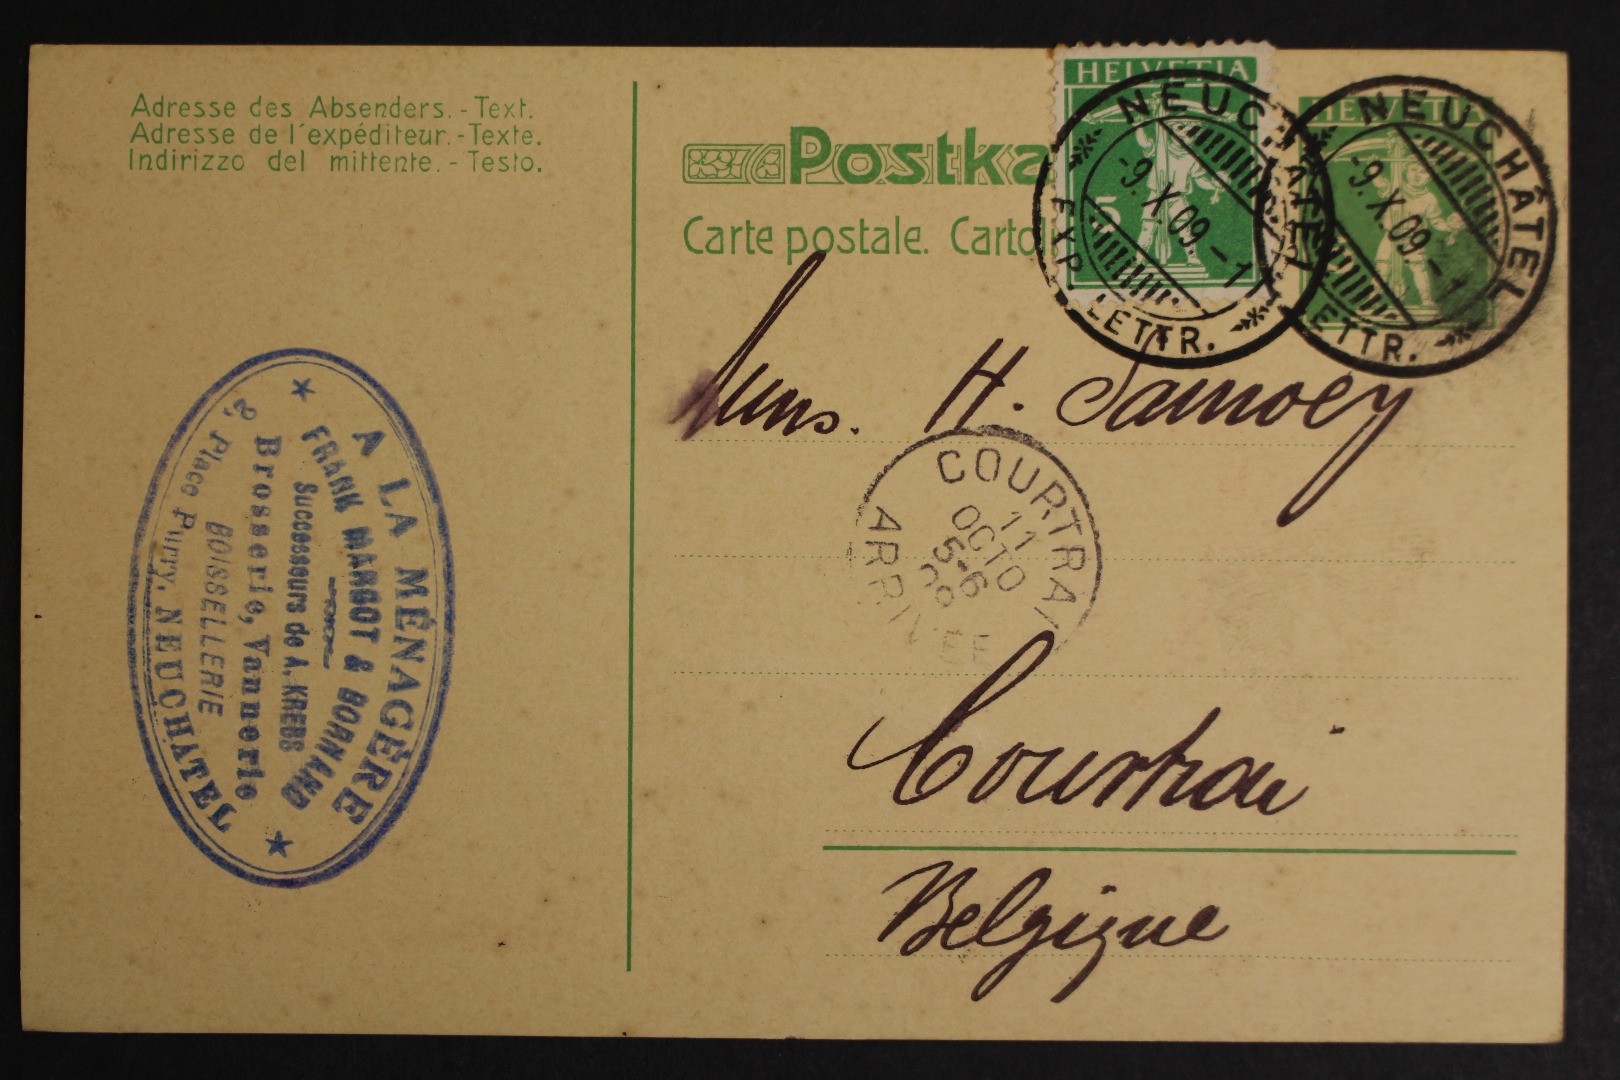 Adresse des Absenders. - Text.
Adresse de l'expéditeur. - Texte.
Indirizzo del mittente. - Testo.
Postka
Carte postale. Carto
HELVETIA
5
NEUCHÂTEL
-9.X.09.-1
EXP. LETTR.
HELVETIA
NEUCHÂTEL
-9.X.09.-1
LETTR.
H.
COURTRAI
11
OCTO
5-6
09
ARRIVÉE
Courtrai
Belgique
A LA MÉNAGÈRE
FRANK MARGOT & BORNAND
Successeurs de A. KREBS
Brosserie, Vannerie
BOISSELLERIE
2, Place Purry, NEUCHÂTEL